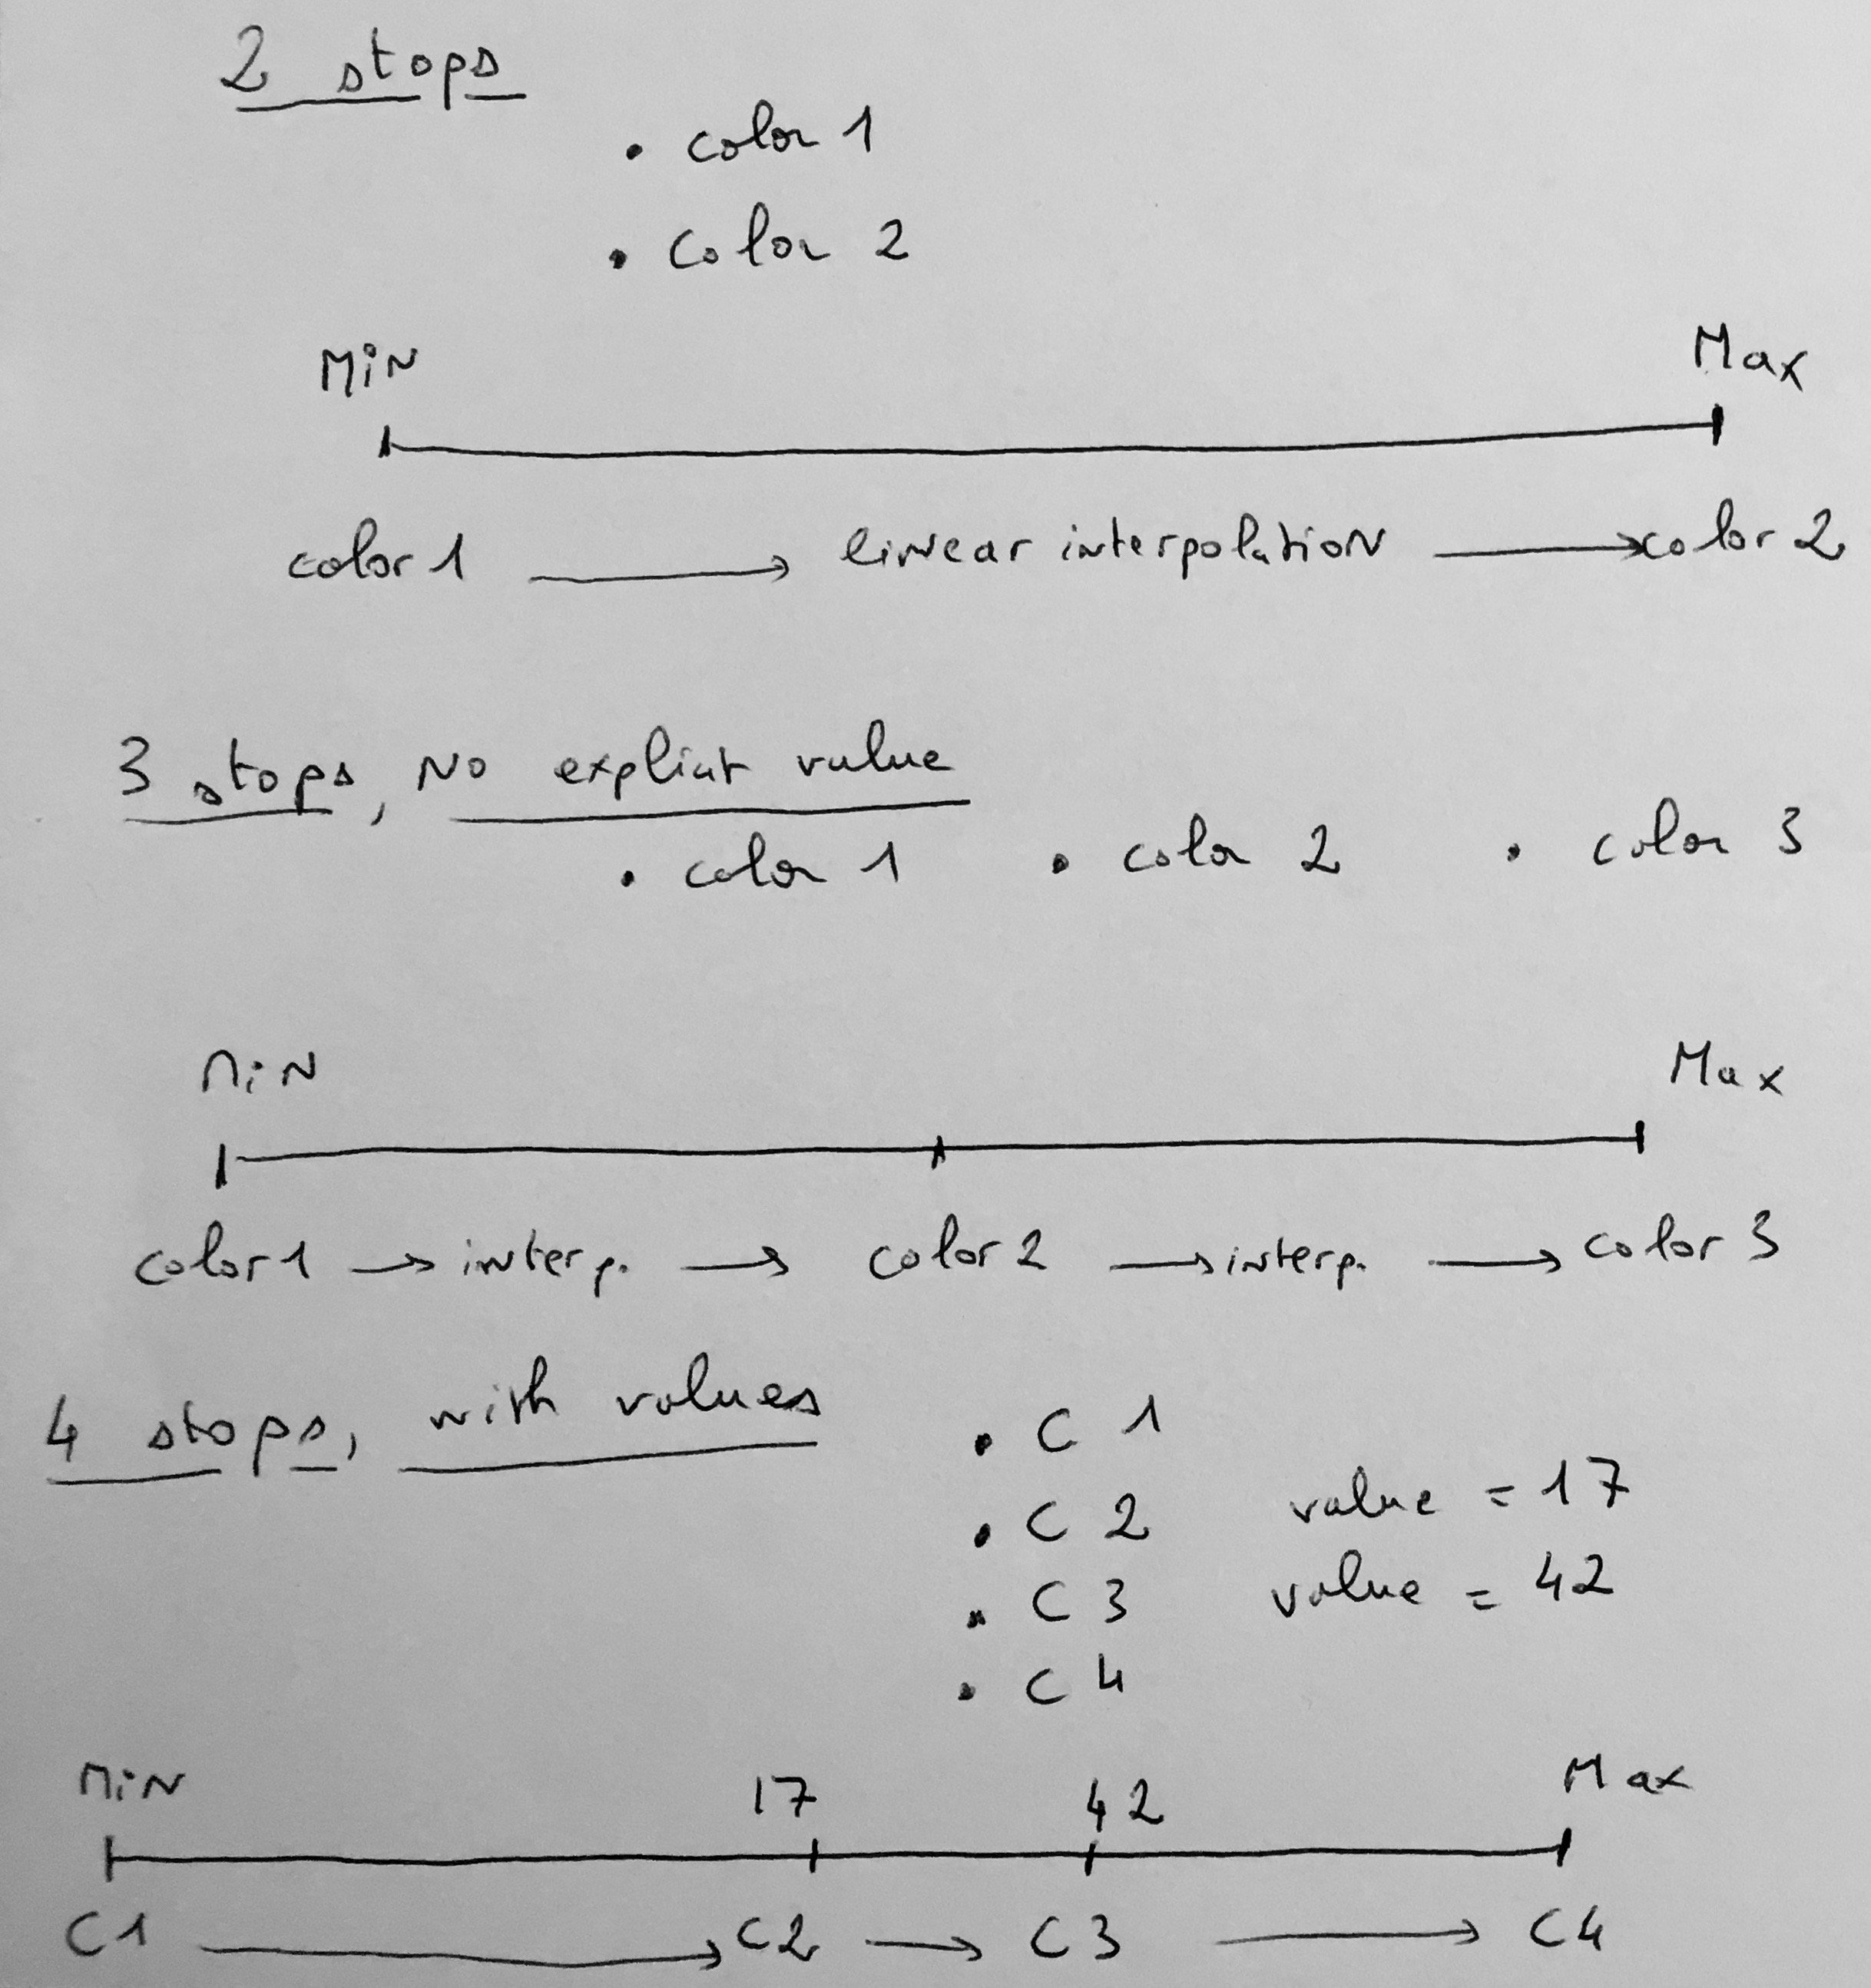 2 stops
• color 1
• color 2
Min Max
color 1 → linear interpolation → color 2
3 stops, no explicit value
• color 1 • color 2 • color 3
Min Max
color 1 → interp. → color 2 → interp. → color 3
4 stops, with values
• C 1
• C 2 value = 17
• C 3 value = 42
• C 4
Min 17 42 Max
C1 → C2 → C3 → C4